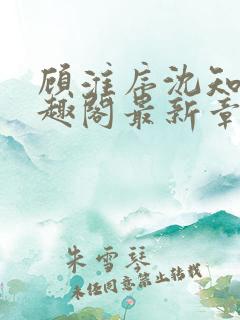 顾淮辰沈知
趣阁最新章
朱雪琴
未经同意禁止转载